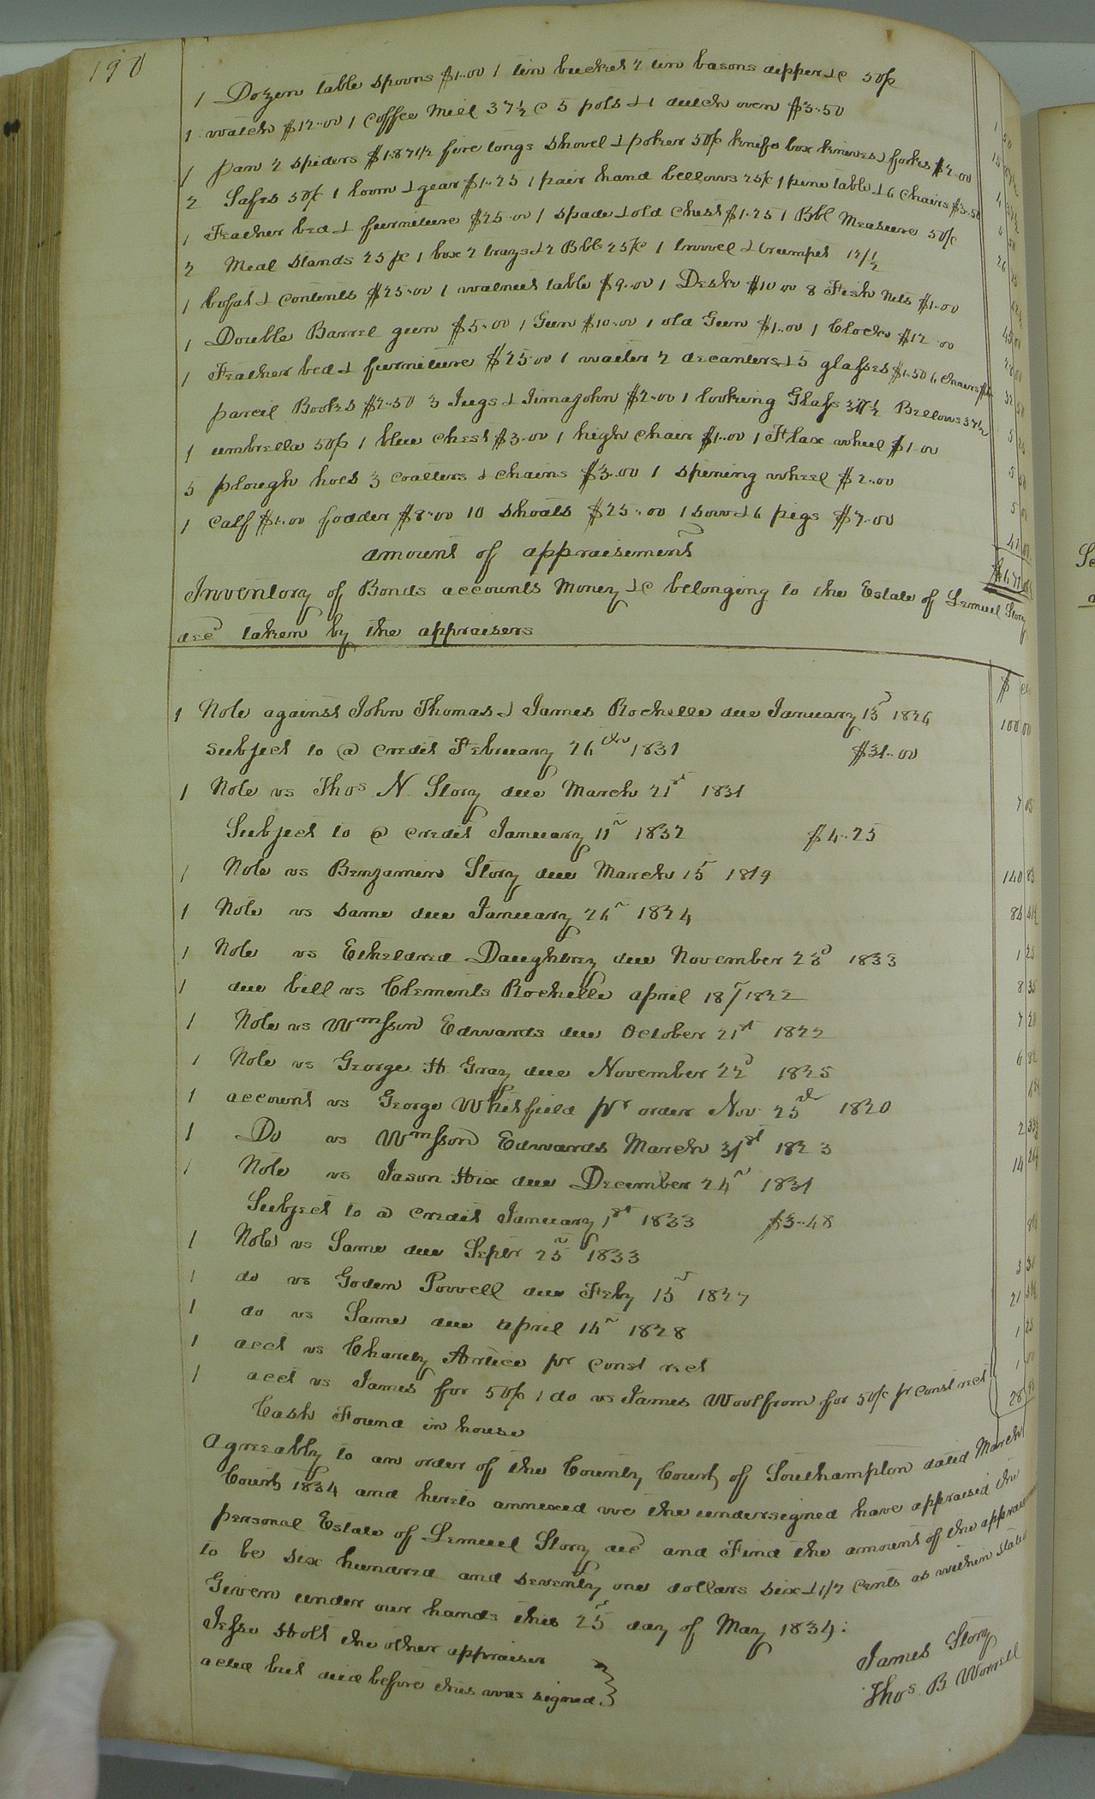 190
1 Dozen table spoons $1..00 1 tin bucket 2 tin basons dipper &c 50/c
1 watch $12..00 1 Coffee Mill 37½ c 5 pots & 1 dutch oven $3..50
1 pan 2 spiders $1.87½ fire tongs shovel & poker 50/c knife box knives & forks $2..00
2 Safes 50/c 1 loom & gear $1..25 1 pair hand bellows 25/c 1 pine table & 6 Chairs $3.50
1 Feather bed & furniture $25..00 1 spade & old Chest $1.25 1 Bbl Measure 50/c
2 Meal Stands 25/c 1 box 2 trays & 2 Bbls 25/c 1 trowel & trumpet 12/½
1 bofat & contents $25..00 1 walnut table $9..00 1 Desk $10 00 8 Fish Nets $1..00
1 Double Barrel gun $5..00 1 Gun $10..00 1 old Gun $1..00 1 Clock $12 00
1 Feather bed & furniture $25.00 1 waiter 2 decanters & 5 glasses $1.50 6 chairs
parcil Books $2..50 3 Jugs & Jimajohn $2..00 1 looking Glass 37½ Bellows 37½
1 umbrella 50/c 1 blue chest $3.00 1 high chair $1..00 1 Flax wheel $1 00
5 plough hoes 3 coalters & chains $3..00 1 spining wheel $2..00
1 Calf $1..00 fodder $8..00 10 shoats $25..00 1 sow & 6 pigs $7..00
amount of appraisement
Inventory of Bonds accounts Money &c belonging to the Estate of Lemuel Story
decd taken by the appraisers
1 Note against John Thomas & James Rochelle due January 15 1826 100 00
subject to @ credit February 26th 1831 $31..00
1 Note vs Thos N. Story due March 21st 1831
Subject to @ credit January 11th 1832 $4..25
1 Note vs Benjamin Story due March 15 1819 140 83
1 Note vs same due January 26th 1824
1 Note vs Etheldred Daughtrey due November 23d 1833 1 25
1 due bill vs Clements Rochelle april 18th 1822
1 Note vs Wmsson Edwards due October 21st 1822
1 Note vs George H. Gray due November 22d 1825
1 account vs George Whitfield pr order Nov 25th 1820
1 Do vs Wmsson Edwards March 31st 1823
1 Note vs Jason Hix due December 24th 1831
Subject to @ credit January 1st 1833 $3..48
1 Note vs Same due Septr 25th 1833
1 do vs Goden Powell due Feby 15th 1827
1 do vs Same due april 14th 1828
1 acct vs Charity Artice pr const rect
1 acct vs James for 50/c 1 do vs James Woolfrom for 50/c pr const rect
Cash Found in house
Agreeably to an order of the County Court of Southampton dated March
Court 1834 and hereto annexed we the undersigned have appraised the
personal Estate of Lemuel Story decd and Find the amount of the
to be six hundred and seventy one dollars six & 1/2 Cents as within Stated
Given under our hands this 25th day of May 1834:
Jesse Stott the other appraiser
acted but died before this was signed.
James Story
Thos B Worrell